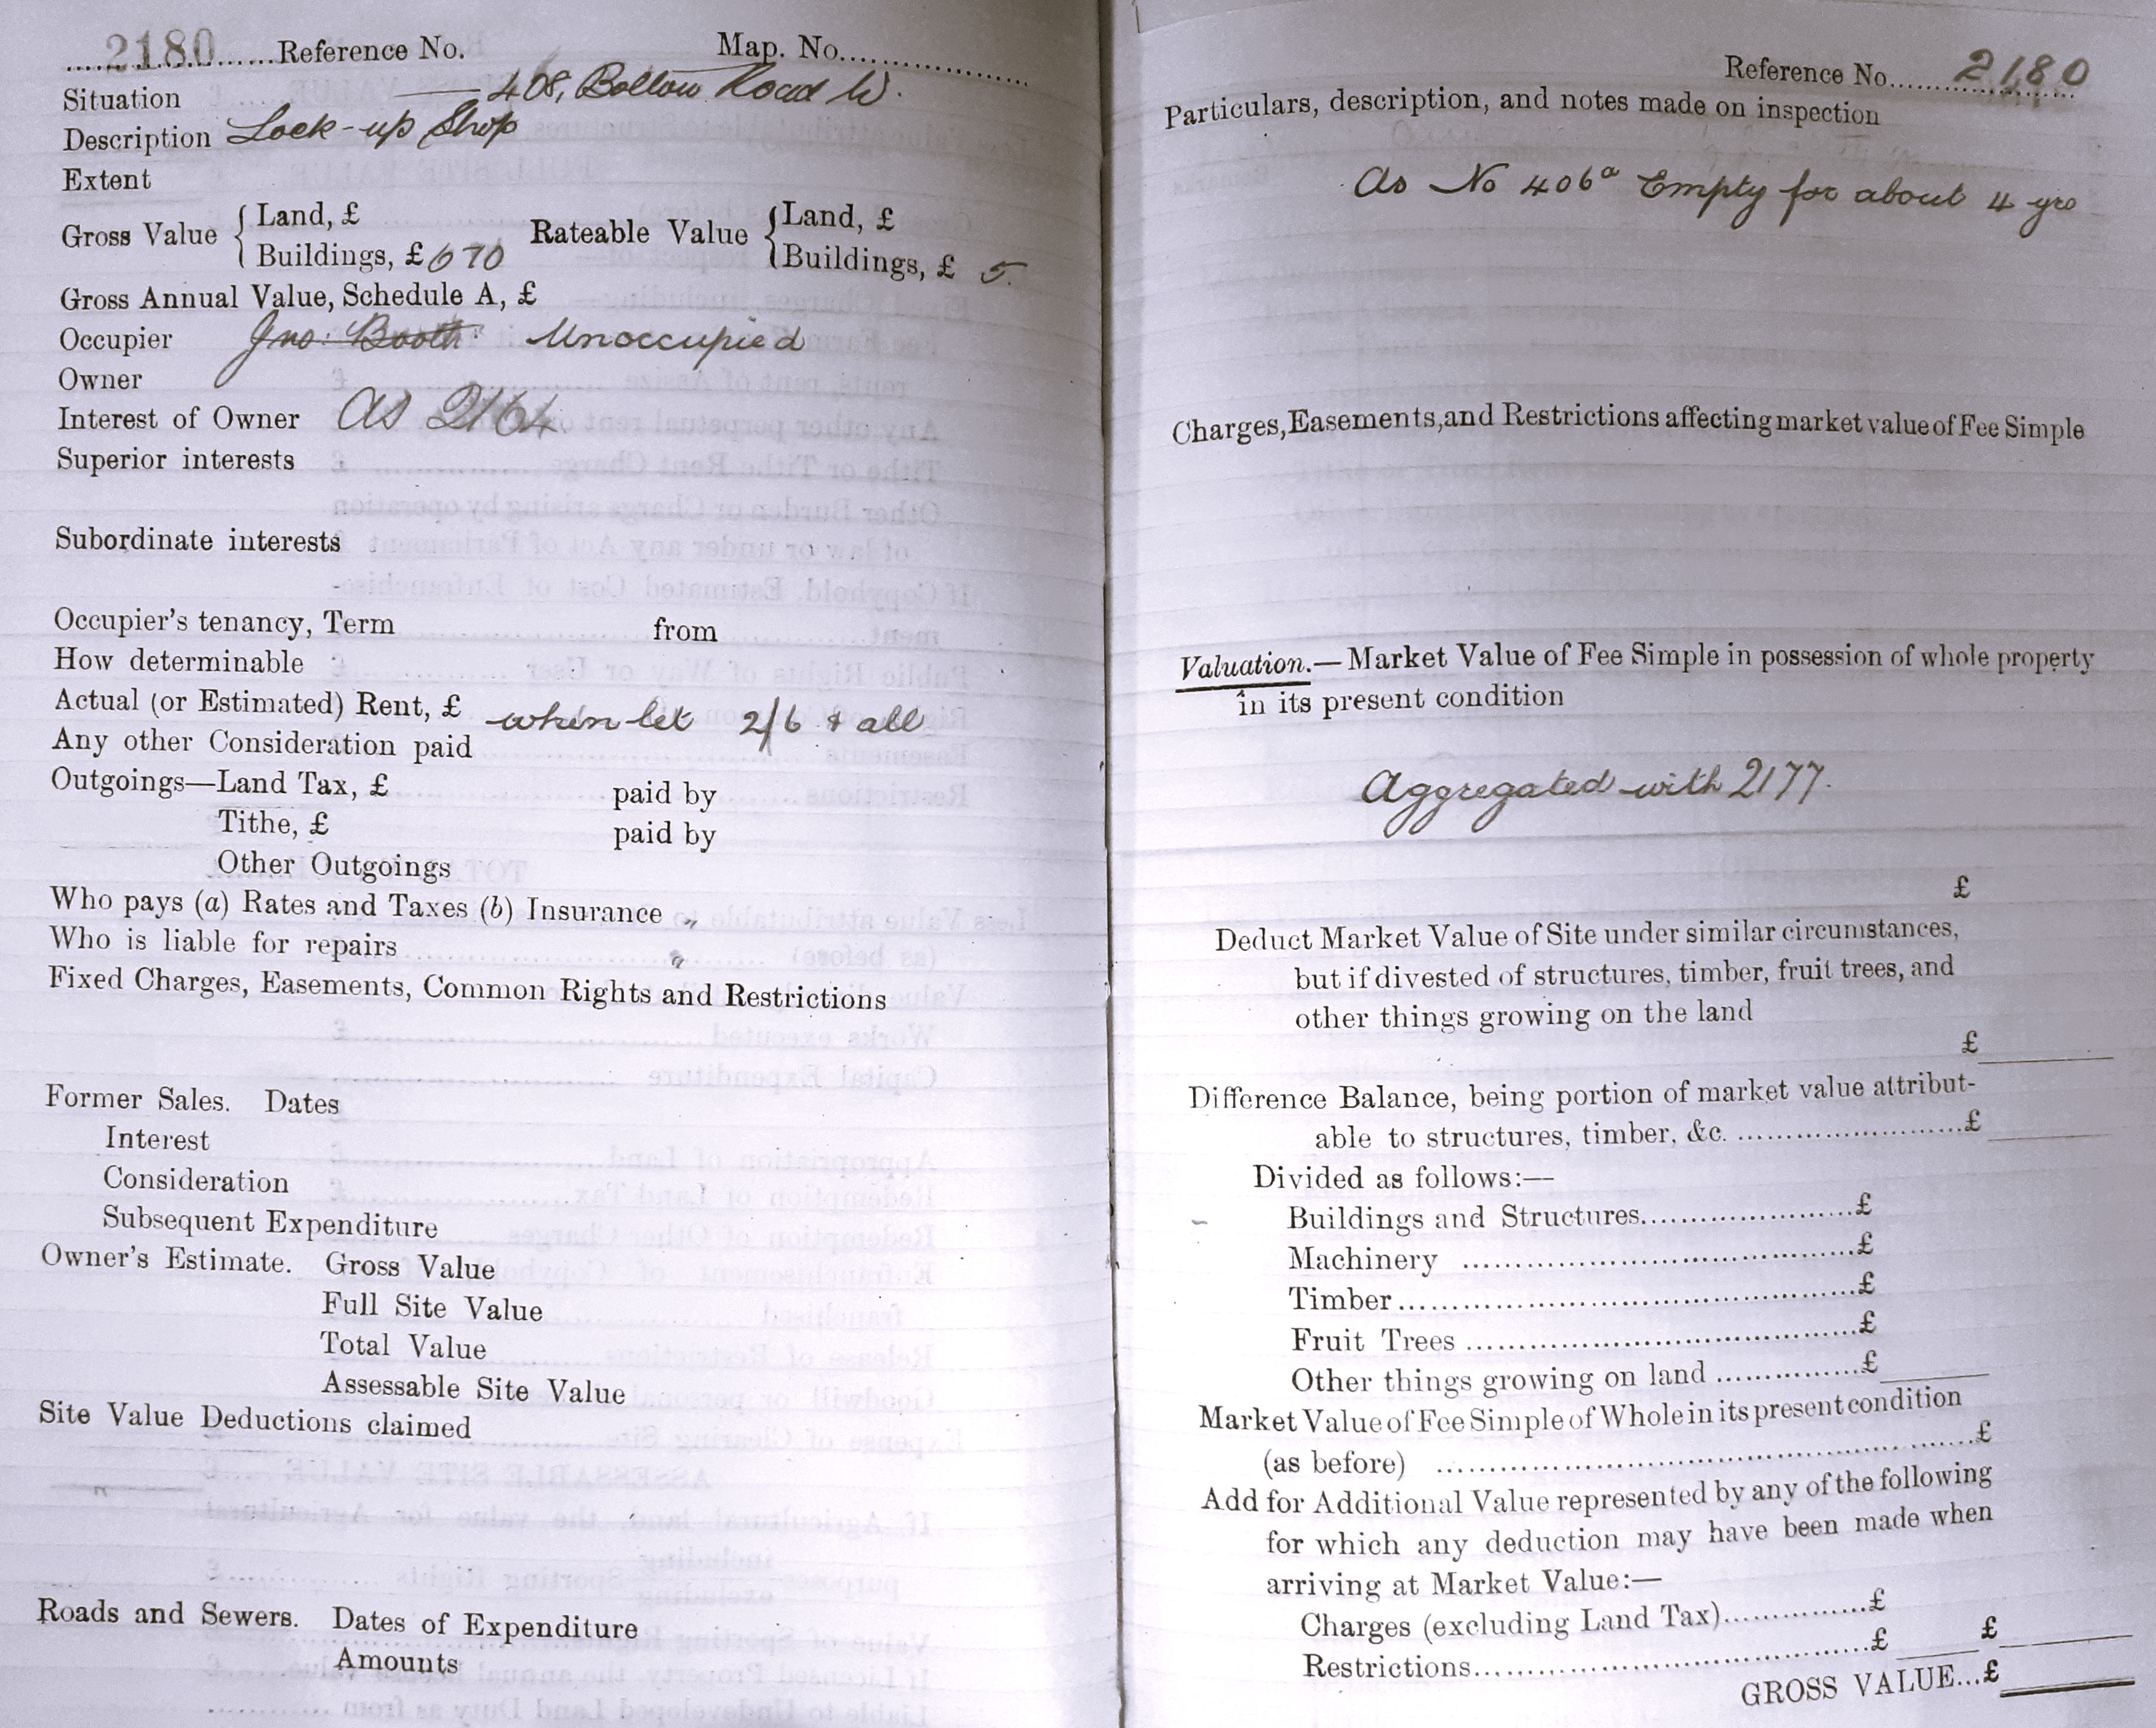 2180 Reference No. Map. No.
Situation 408, Bollow Road W.
Description Lock-up Shop
Extent
Gross Value { Land, £ Rateable Value { Land, £
Buildings, £ 6 70 Buildings, £ 5.
Gross Annual Value, Schedule A, £
Occupier Jno: Booth: Unoccupied
Owner
Interest of Owner As 2164
Superior interests
Subordinate interests
Occupier's tenancy, Term from
How determinable
Actual (or Estimated) Rent, £ when let 2/6 & all
Any other Consideration paid
Outgoings—Land Tax, £ paid by
Tithe, £ paid by
Other Outgoings
Who pays (a) Rates and Taxes (b) Insurance
Who is liable for repairs
Fixed Charges, Easements, Common Rights and Restrictions
Former Sales. Dates
Interest
Consideration
Subsequent Expenditure
Owner's Estimate. Gross Value
Full Site Value
Total Value
Assessable Site Value
Site Value Deductions claimed
Roads and Sewers. Dates of Expenditure
Amounts
Reference No. 2180
Particulars, description, and notes made on inspection
As No 406a Empty for about 4 yrs
Charges, Easements, and Restrictions affecting market value of Fee Simple
Valuation.—Market Value of Fee Simple in possession of whole property
in its present condition
Aggregated with 2177.
£
Deduct Market Value of Site under similar circumstances,
but if divested of structures, timber, fruit trees, and
other things growing on the land
£
Difference Balance, being portion of market value attribut-
able to structures, timber, &c. £
Divided as follows:—
Buildings and Structures £
Machinery £
Timber £
Fruit Trees £
Other things growing on land £
Market Value of Fee Simple of Whole in its present condition
(as before) £
Add for Additional Value represented by any of the following
for which any deduction may have been made when
arriving at Market Value:—
Charges (excluding Land Tax) £
Restrictions £ £
GROSS VALUE...£